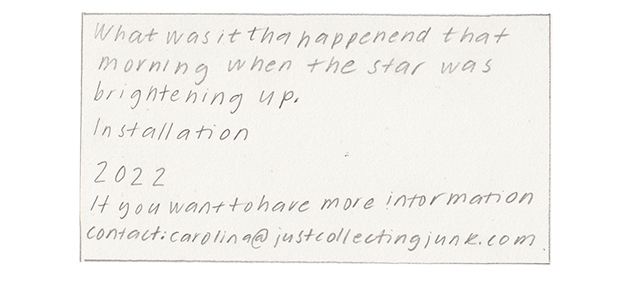 What was it tha happenend that
morning when the star was
brightening up.
Installation
2022
If you want to have more information
contact: carolina@justcollectingjunk.com.